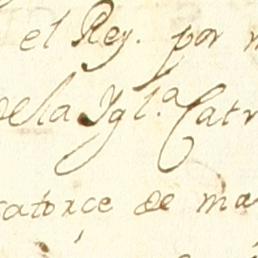 el Rey. por
de la Ygl.ª Catr
catorçe de ma